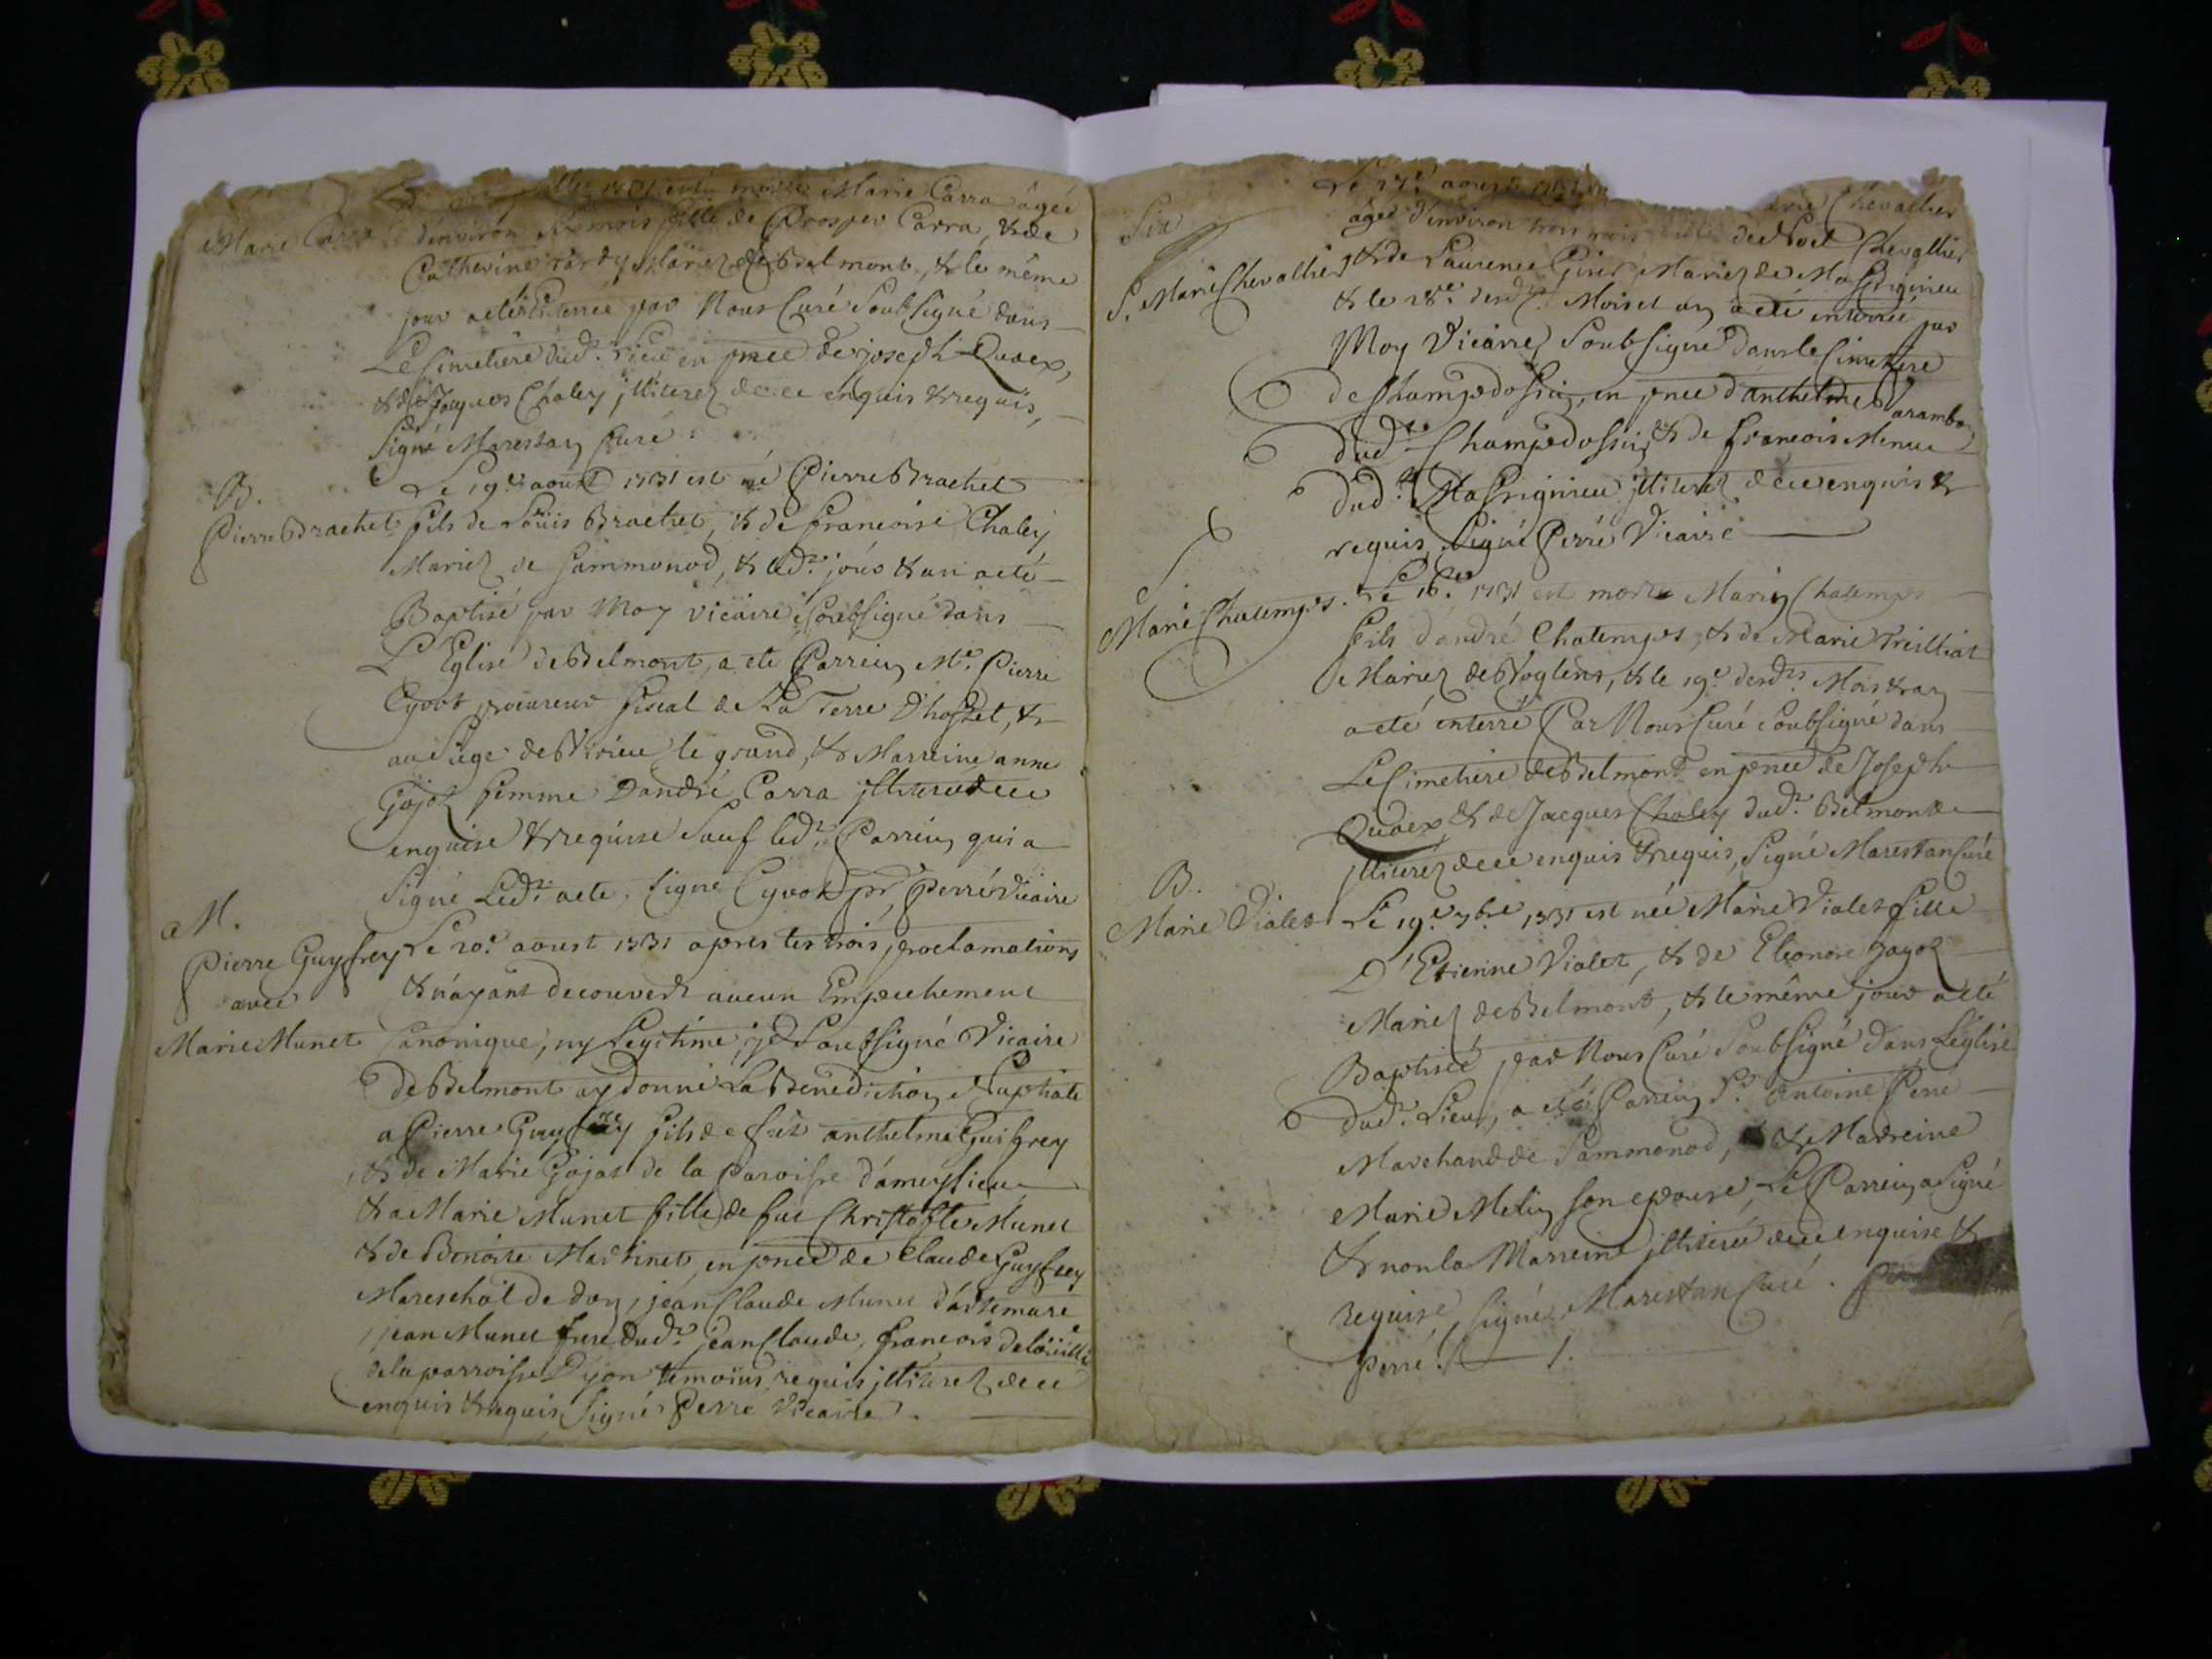 1731 est morte Marie Carra âgée
Marie Carra d'environ six mois fille de Prosper Carra, & de
Catherine tardy Mariez de Belmont, & le même
jour a eté Enterrée par Nous Curé Soubsigné dans
Le Cimetiere dud.t lieu en pnce de joseph Quaex,
& de Jaques Chaley jlliterez de ce enquis & requis,
Signé Marestan Curé
B.
Le 19.e aoust 1731 est né Pierre Brachet
Pierre Brachet fils de Loüis Brachet, & de francoise Chaley
Mariez de Sammonod, & led.t jour & an a eté
Baptisé par Moy vicaire Soubsigné dans
L'Eglise de Belmont, a ete Parrein M.e Pierre
Cyvot procureur fiscal de La Terre D'hostel, &
au Siege de Virieu le grand, & Marreine anne
Gojoz femme D'andré Carra jlliterée de ce
enquise & requise Sauf led.t Parrein qui a
Signé Led.t acte. Signé Cyvot pr. Perré Vicaire
M.
Pierre Guyfrey Le 20.e aoust 1731 apres les trois proclamations
avec & n'ayant decouvert aucun Empechement
Marie Munet Canonique, ny Legitime, je Soubsigné Vicaire
de Belmont ay donné La Benediction Nuptiale
a Pierre Guyfrey fils de fut anthelme Guifrey
& de Marie Gojat de la paroisse d'ameysieu
& a Marie Munet fille de fut Christofle Munet
& de Benoite Martinet, en pnce de Claude Guyfrey
Mareschal de don, jean Claude Munet d'artemare
jean Munet frere dud.t jean Claude, francois
de la parroisse D'yon temoins requis jlliterez de ce
enquis & requis, Signé Perré Vicaire.
Le 27.e aoust 1731 Chevallier
âgée d'environ trois mois fille de Noel Chevallier
S. Marie Chevallier & de Laurence Girer Mariez de Massignieu
& le 28.e desd.ts Mois et an a eté enterrée par
Moy Vicaire Soubsigné dans le Cimetiere
de Champdossin, en pnce d'anthelme Varambon
dud.t Champdossin, & de francois Menue
dud.t Massignieu jlliterez de ce enquis &
requis, Signé Perré Vicaire
S.
Marie Chatemps. Le 18.e 1731 est morte Marin Chatemps
fils d'andré Chatemps, & de Marie Treilliat
Mariez de Voglens, & le 19.e desd.ts Mois & an
a eté enterré Par Nous Curé Soubsigné dans
Le Cimetiere de Belmont en pnce de Joseph
Quaex, & de Jacques Chaley dud.t Belmont
jlliterez de ce enquis & requis, Signé Marestan Curé
B.
Marie Violet Le 19.e 7bre 1731 est née Marie Violet fille
D'Etienne Violet, & de Eleonore Gojoz
Mariez de Belmont, & le même jour a eté
Baptisée par Nous Curé Soubsigné dans L'église
dud.t Lieu, a eté Parrein S.r Antoine Perré
Marchand de Sammonod, & Marreine
Marie Melin son epouse, Le Parrein a Signé
& non la Marreine jlliterée de ce enquise &
requise, Signé Marestan Curé.
perré.